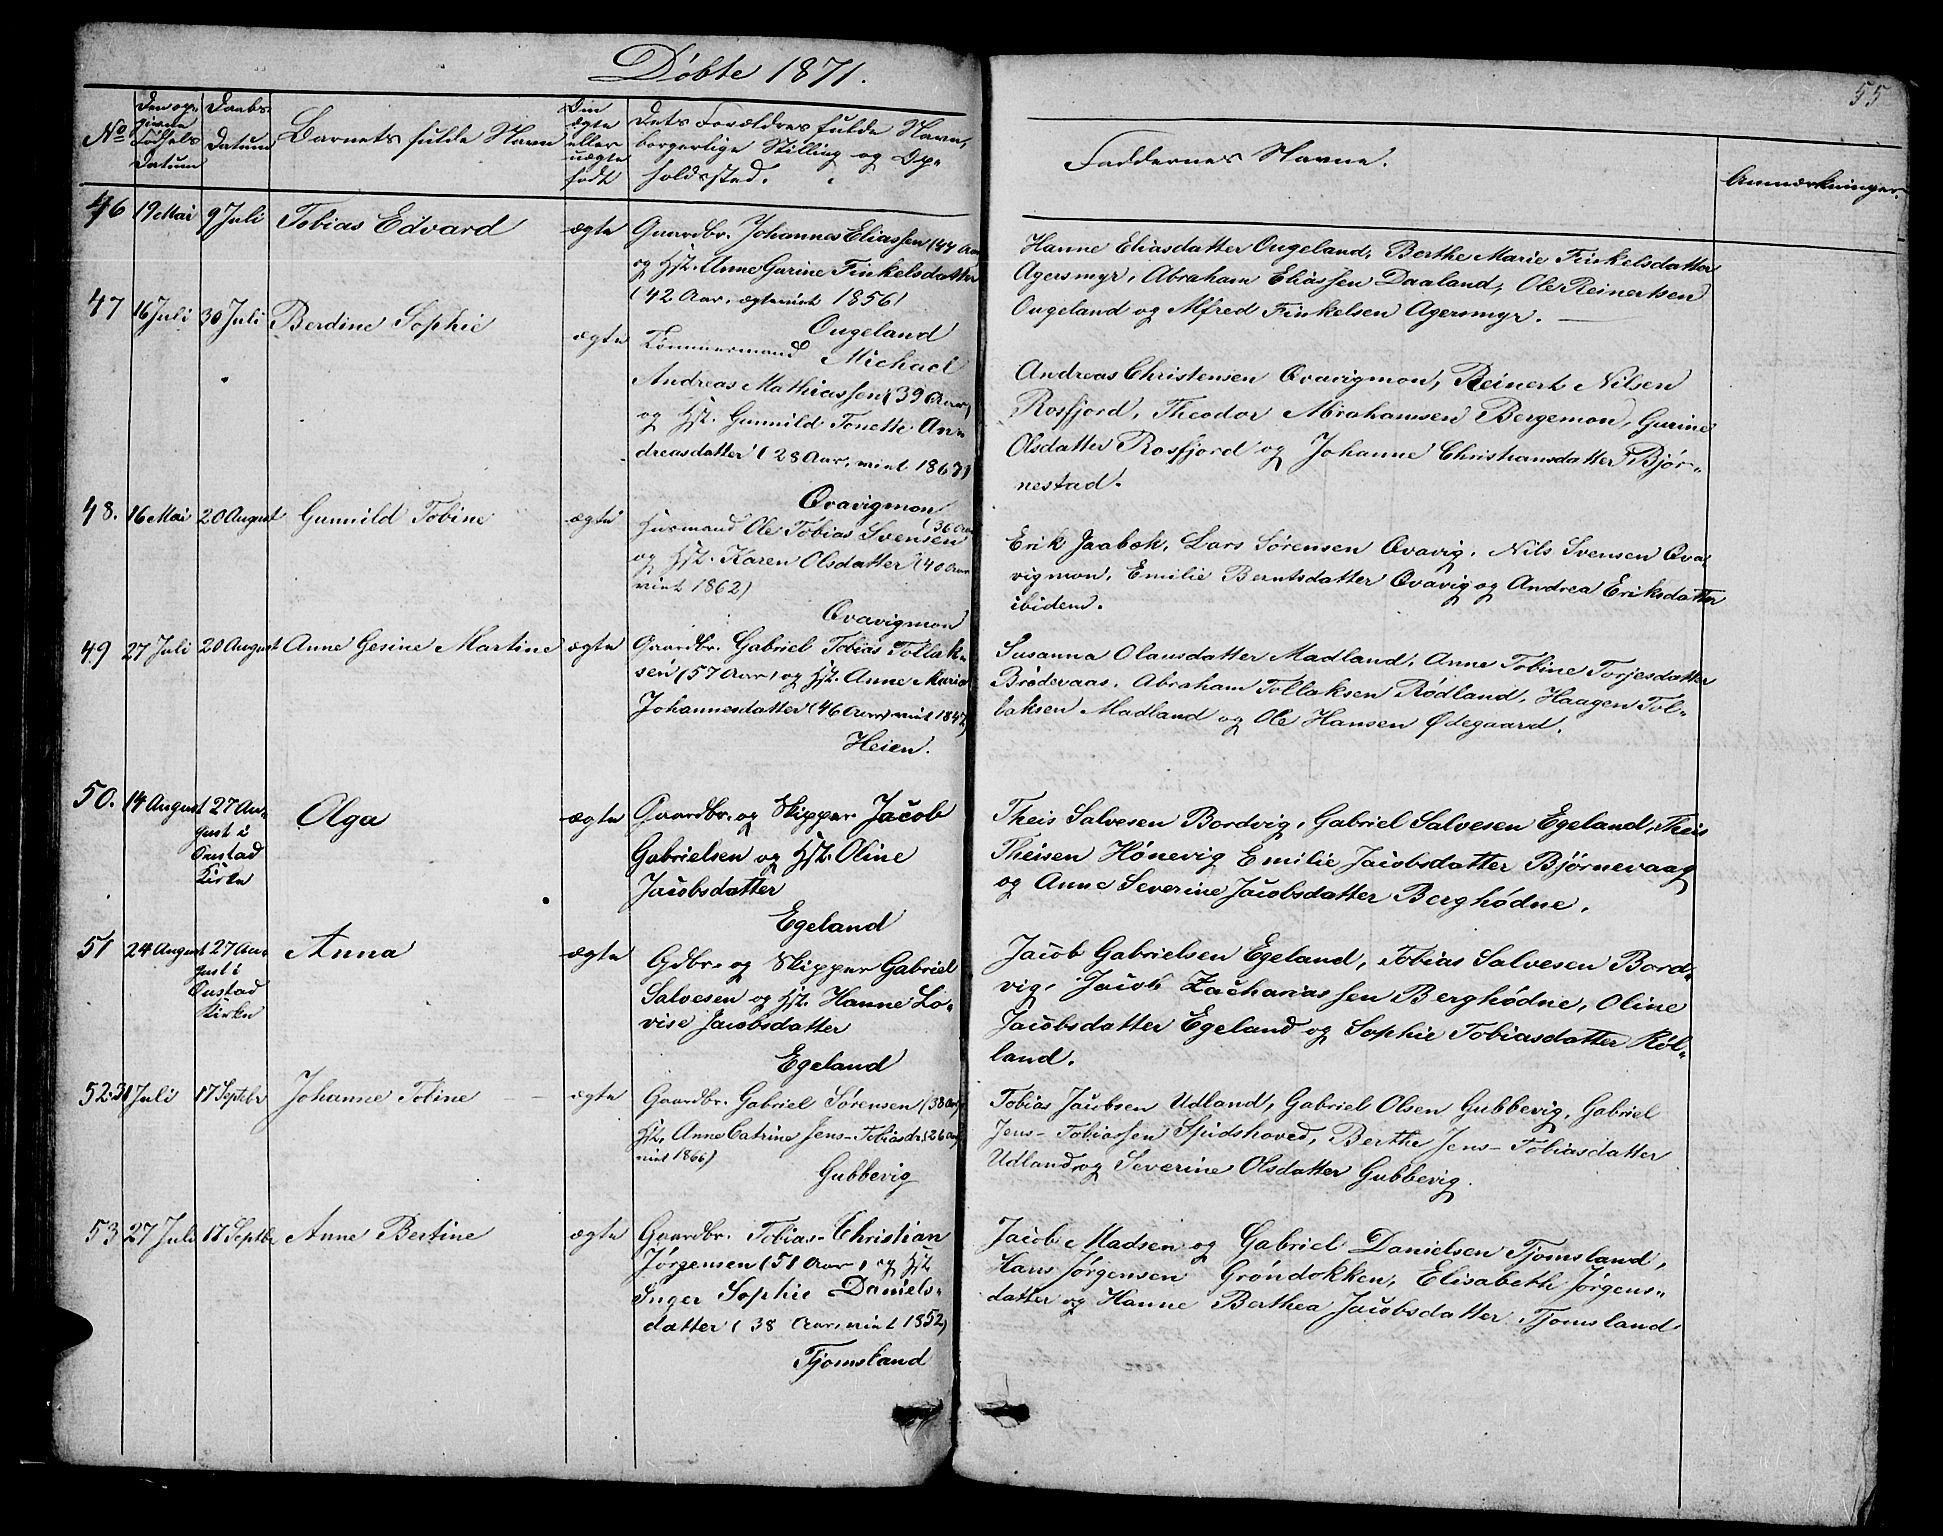 Döbte 1871.
55
No
Den op-
givne
Födsels
Datum
Daabs
Datum
Barnets fulde Navn
Om
ægte
eller
uægte
født
Dets Forældres fulde Navn,
borgerlige Stilling og Op-
holdssted.
Faddernes Navne.
Anmærkninger.
46 19 Mai 9 Juli Tobias Edvard ægte
Gaardbr. Johannes Eliassen (44 Aar
og Hst. Anne Gurine Finkelsdatter
(42 Aar, ægteviet 1856)
Ougeland
Hanne Eliasdatter Ougeland, Berthe Marie Finkelsdatter
Agersmyr, Abraham Eliassen Daaland, Ole Reinertsen
Ougeland og Alfred Finkelsen Agersmyr.
47 16 Juli 30 Juli Berdine Sophie ægte
Tömmermand Michael
Andreas Mathiassen (39 Aar)
og Hst. Gunnild Tonette An-
dreasdatter (28 Aar, viet 1867)
Qvavigmon
Andreas Christensen Qvavigmon, Reinert Nilsen
Rosfjord, Theodor Abrahamsen Bergemon, Gurine
Olsdatter Rosfjord og Johanne Christiansdatter Bjør-
nestad.
48. 16 Mai 20 August Gunnild Tobine ægte
(36 Aar
Husmand Ole Tobias Svensen
og Hst. Karen Olsdatter (40 Aar
viet 1862)
Qvavigmon
Erik Jaabæk, Lars Sörensen Qvavig, Nils Svensen Qva-
vigmon, Emilie Berntsdatter Qvavig og Andrea Eriksdatter
ibidem.
49 27 Juli 20 August Anne Gesine Martine ægte
Gaardbr. Gabriel Tobias Tollak-
sen (57 Aar) og Hst. Anne Maria
Johannesdatter (46 Aar, viet 1847)
Heien.
Susanna Olausdatter Madland, Anne Tobine Torjesdatter
Brödevaas, Abraham Tollaksen Rödland, Haagen Tol-
laksen Madland og Ole Hansen Ødegaard.
50. 14 August 27 Au-
gust i
Oustad
Kirke
Olga ægte
Gaardbr. og Skipper Jacob
Gabrielsen og Hst. Oline
Jacobsdatter
Egeland
Theis Salvesen Bordvig, Gabriel Salvesen Egeland, Theis
Theisen Hönevig Emilie Jacobsdatter Bjørnevaag
og Anne Severine Jacobsdatter Berghödne.
51 24 August 27 Au-
gust i
Oustad
Kirke
Anna ægte
Gdbr. og Skipper Gabriel
Salvesen og Hst. Hanne Lo-
vise Jacobsdatter
Egeland
Jacob Gabrielsen Egeland, Tobias Salvesen Bord-
vig, Jacob Zachariassen Berghödne, Oline
Jacobsdatter Egeland og Sophie Tobiasdatter Röl-
land.
52. 31 Juli 17 Septbr Johanne Tobine ægte
Gaardbr. Gabriel Sörensen (38 Aar
Hst. Anne Catrine Jens-Tobiasdr. (26 Aar
viet 1866)
Gubbevig
Tobias Jacobsen Udland, Gabriel Olsen Gubbevig, Gabriel
Jens-Tobiassen Spidshoved, Berthe Jens-Tobiasdatter
Udland og Severine Olsdatter Gubbevig.
53 27 Juli 17 Septbr Anne Bertine ægte
Gaardbr. Tobias Christian
Jørgensen (51 Aar) og Hst
Inger Sophie Daniels-
datter (38 Aar, viet 1852)
Tjomsland
Jacob Madsen og Gabriel Danielsen Tjomsland,
Hans Jørgensen Gröndokken, Elisabeth Jørgens-
datter og Hanne Berthea Jacobsdatter Tjomsland